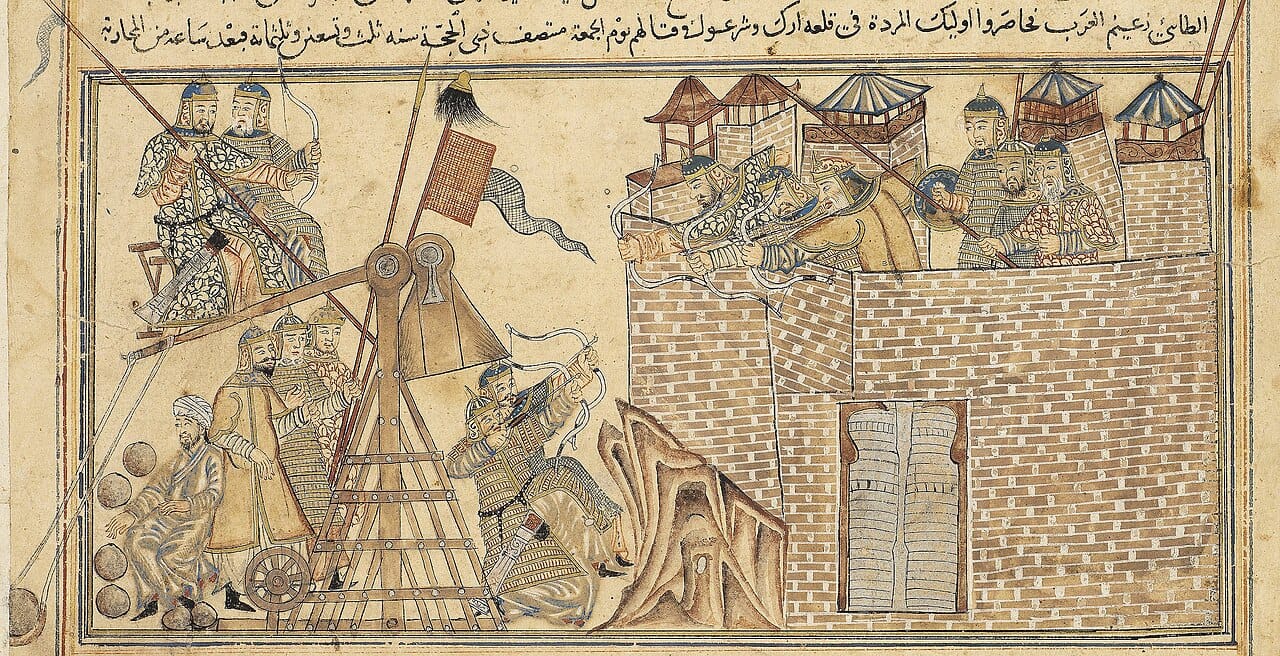 الطائي زعيم العرب فحاصروا اوليك المردة في قلعه ارك وشرعوا في قتالهم يوم الجمعة منتصف ذي الحجة سنه ثلث وتسعين وثلثمائة فبعد ساعه من المحاربة